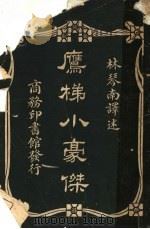 林琴南譯述
鷹梯小豪傑
商務印書館發行